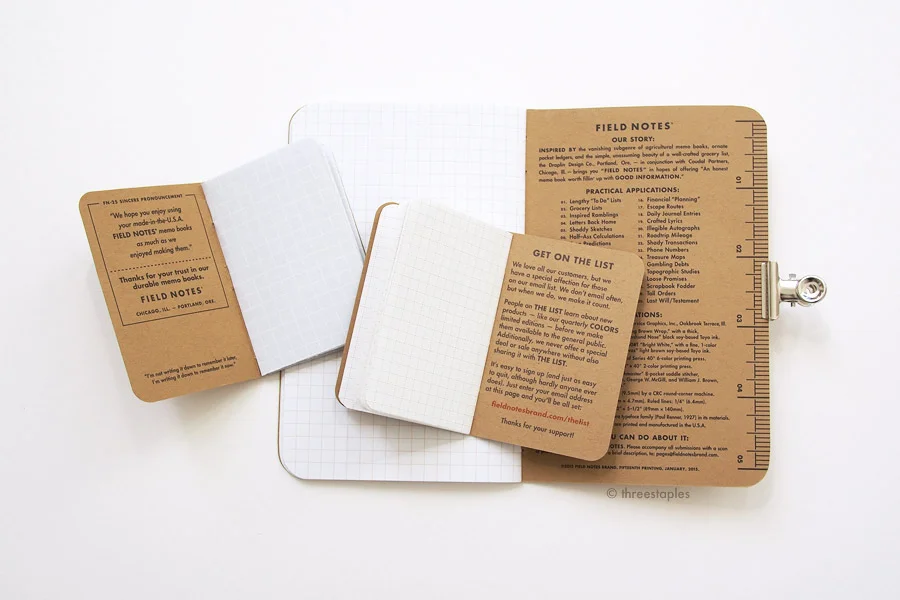 FN-25 SINCERE PRONOUNCEMENT
"We hope you enjoy using
your made-in-the-U.S.A.
FIELD NOTES™ memo books
as much as we
enjoyed making them."
Thanks for your trust in our
durable memo books.
FIELD NOTES™
CHICAGO, ILL. — PORTLAND, ORE.
"I'm not writing it down to remember it later,
I'm writing it down to remember it now."
GET ON THE LIST
We love all our customers, but we
have a special affection for those
on our email list. We don't email often,
but when we do, we make it count.
People on THE LIST learn about new
products — like our quarterly COLORS
limited editions — before we make
them available to the general public.
Additionally, we never offer a special
deal or sale anywhere without also
sharing it with THE LIST.
It's easy to sign up (and just as easy
to quit, although hardly anyone ever
does). Just enter your email address
at this page and you'll be all set:
fieldnotesbrand.com/thelist
Thanks for your support!
FIELD NOTES™
OUR STORY:
INSPIRED BY the vanishing subgenre of agricultural memo books, ornate
pocket ledgers, and the simple, unassuming beauty of a well-crafted grocery list,
the Draplin Design Co., Portland, Ore. — in conjunction with Coudal Partners,
Chicago, Ill. — brings you "FIELD NOTES" in hopes of offering "An honest
memo book worth fillin' up with GOOD INFORMATION."
PRACTICAL APPLICATIONS:
01. Lengthy "To Do" Lists
02. Grocery Lists
03. Inspired Ramblings
04. Letters Back Home
05. Shoddy Sketches
06. Half-Ass Calculations
Predictions
16. Financial "Planning"
17. Escape Routes
18. Daily Journal Entries
19. Crafted Lyrics
20. Illegible Autographs
21. Roadtrip Mileage
22. Shady Transactions
23. Phone Numbers
Treasure Maps
Gambling Debts
Topographic Studies
Loose Promises
Scrapbook Fodder
Tall Orders
Last Will/Testament
ATIONS:
Service Graphics, Inc., Oakbrook Terrace, Ill.
Brown Wrap," with a thick,
Nose" black soy-based Toyo ink.
"Bright White," with a fine, 1-color
light brown soy-based Toyo ink.
Series 40" 6-color printing press.
40" 2-color printing press.
8-pocket saddle stitcher,
George W. McGill, and William J. Brown,
by a CRC round-corner machine.
Ruled lines: 1/4" (6.4mm).
x 5-1/2" (89mm x 140mm).
typeface family (Paul Renner, 1927) in its materials.
printed and manufactured in the U.S.A.
YOU CAN DO ABOUT IT:
Please accompany all submissions with a scan
brief description, to: pages@fieldnotesbrand.com.
©2012 FIELD NOTES BRAND, FIFTEENTH PRINTING, JANUARY, 2012.
01
02
03
04
05
© threestaples